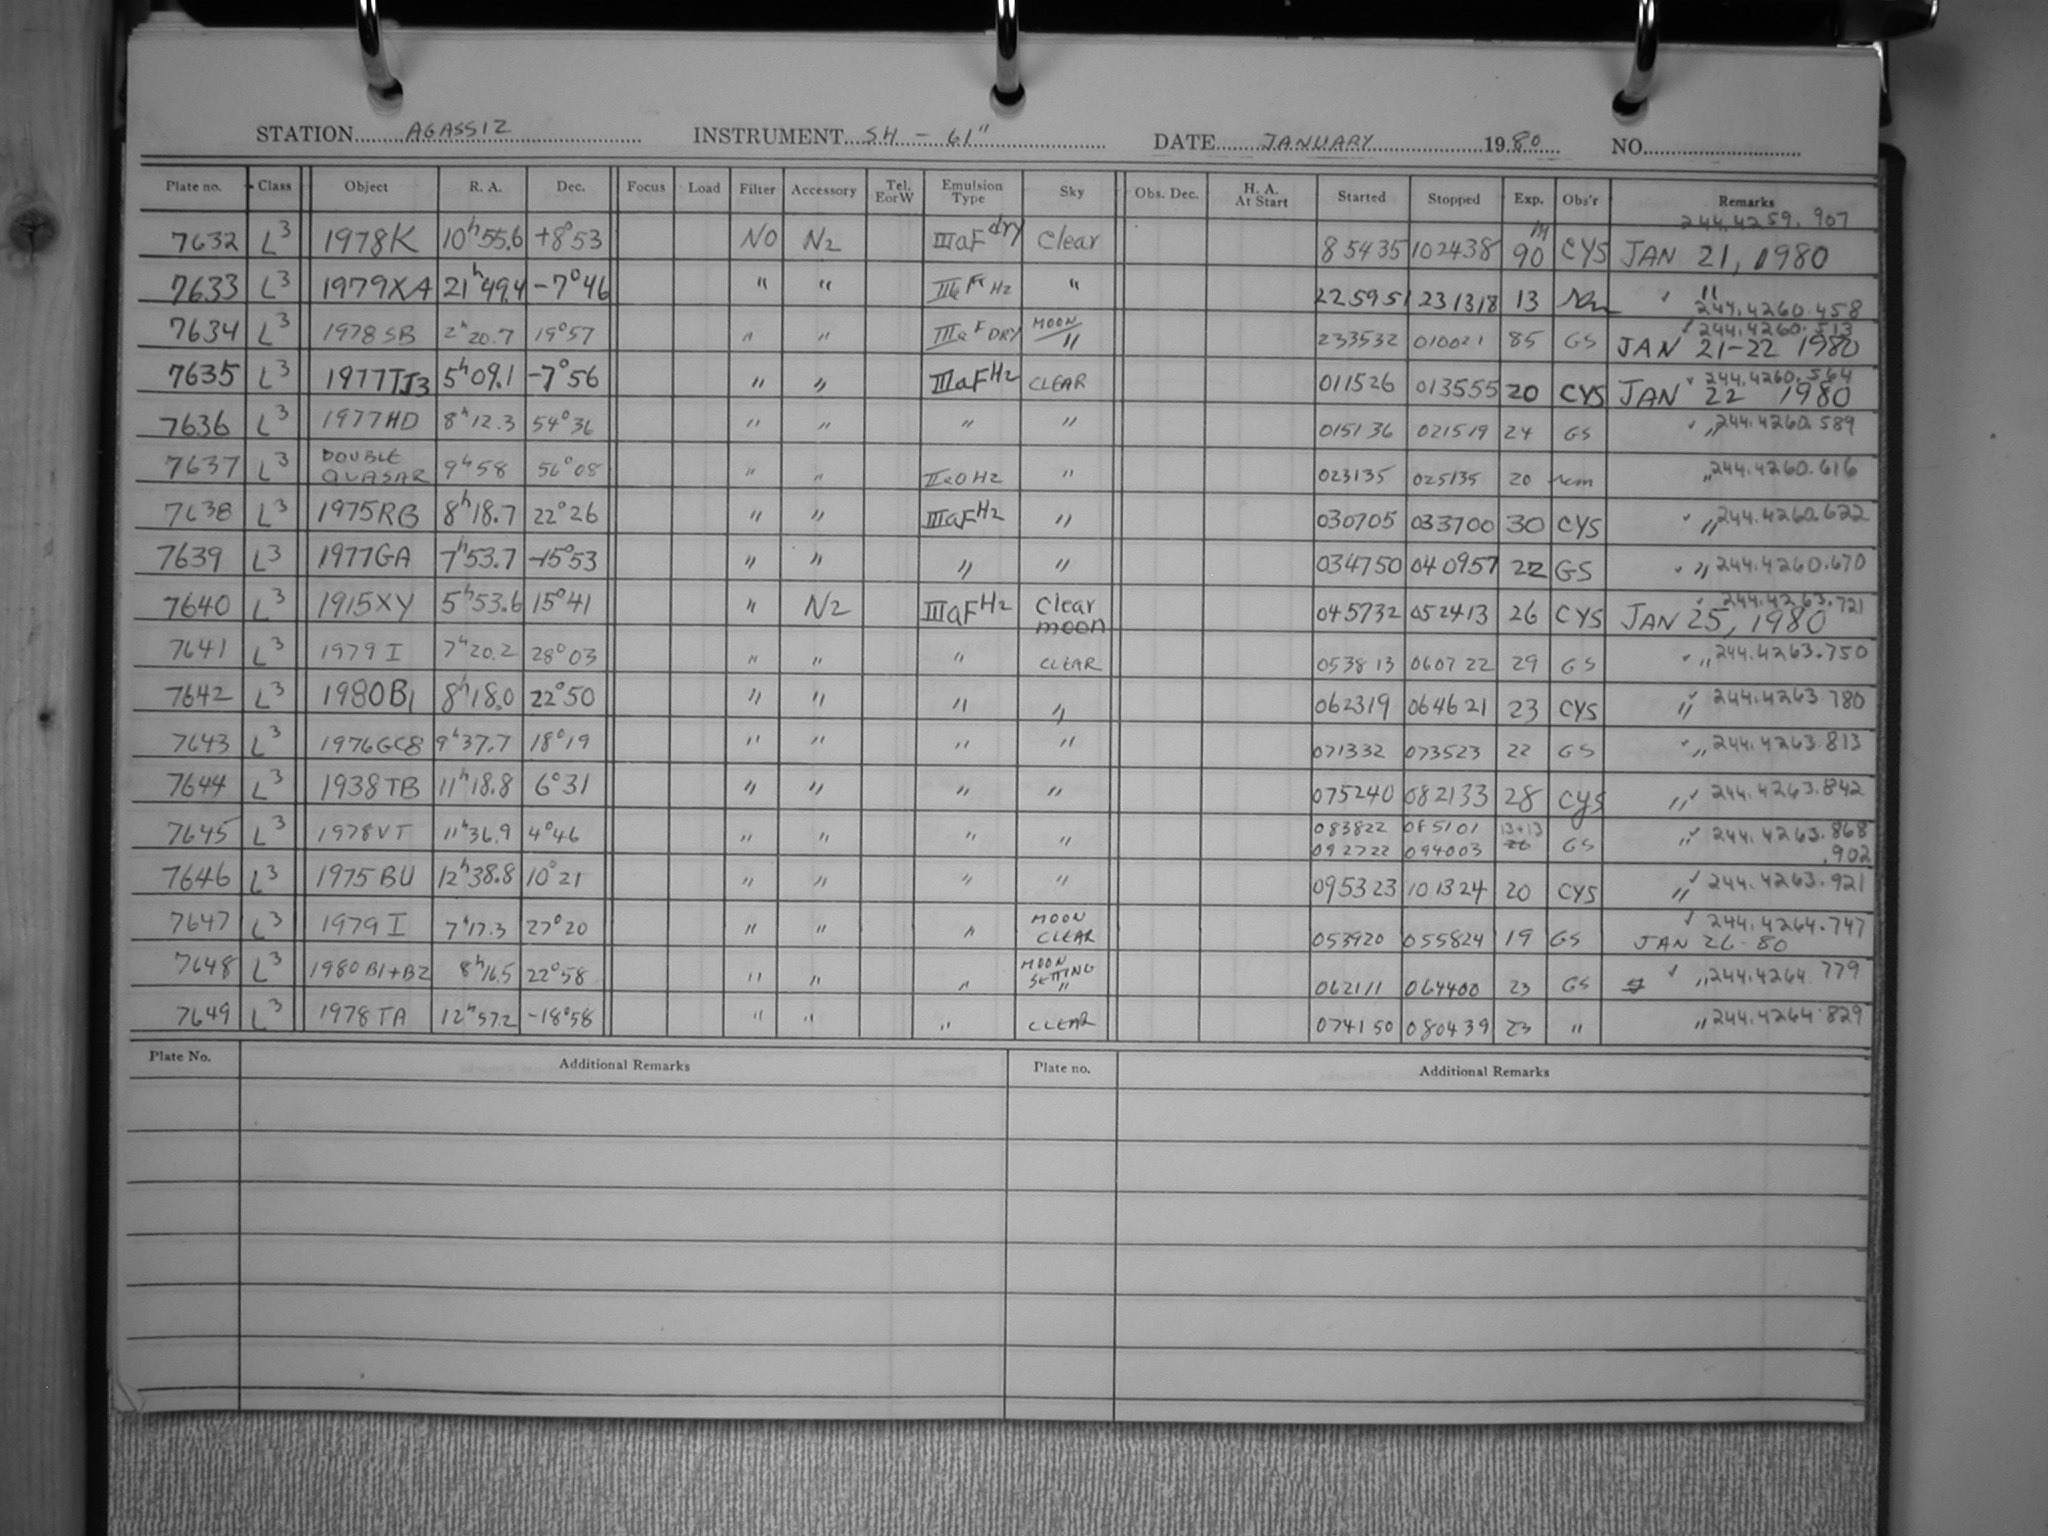 STATION AGASSIZ INSTRUMENT SH - 61" DATE JANUARY 1980 NO.
Plate no. Class Object R. A. Dec. Focus Load Filter Accessory Tel. EorW Emulsion Type Sky Obs. Dec. H. A. At Start Started Stopped Exp. Obs'r Remarks
244.4259.907
7632 L3 1978K 10h55.6 +8°53 NO N2 IIIaF dry Clear 85435 102438 90m CYS JAN 21, 1980
7633 L3 1979XA 21h49.4 -7°46 " " Hz " 225951 231318 13 " 244.4260.458
7634 L3 1978SB 2h20.7 19°57 " " IIIaF DRY MOON " 233532 010021 85 GS JAN 21-22 1980 244.4260.513
7635 L3 1977TJ3 5h09.1 -7°56 " " IIIaF Hz CLEAR 011526 013555 20 CYS JAN 22 1980 244.4260.564
7636 L3 1977HD 8h12.3 54°36 " " " " 015136 021519 24 GS " 244.4260.589
7637 L3 DOUBLE QUASAR 9h58 56°08 " " IIaO Hz " 023135 025135 20 " 244.4260.616
7638 L3 1975RB 8h18.7 22°26 " " IIIaF Hz " 030705 033700 30 CYS " 244.4260.622
7639 L3 1977GA 7h53.7 -15°53 " " " " 034750 040957 22 GS " 244.4260.670
7640 L3 1915XY 5h53.6 15°41 " N2 IIIaF Hz Clear moon 045732 052413 26 CYS JAN 25, 1980 244.4263.721
7641 L3 1979 I 7h20.2 28°03 " " " CLEAR 053813 060722 29 GS " 244.4263.750
7642 L3 1980B1 8h18.0 22°50 " " " " 062319 064621 23 CYS " 244.4263.780
7643 L3 1976GC8 9h37.7 18°19 " " " " 071332 073523 22 GS " 244.4263.813
7644 L3 1938TB 11h18.8 6°31 " " " " 075240 082133 28 CYS " 244.4263.842
7645 L3 1978VT 11h36.9 4°46 " " " " 083822 085101 13+13 GS " 244.4263.868
092722 094003 26 .902
7646 L3 1975BU 12h38.8 10°21 " " " " 095323 101324 20 CYS " 244.4263.921
7647 L3 1979 I 7h17.3 27°20 " " " MOON CLEAR 053920 055824 19 GS JAN 26-80 244.4264.747
7648 L3 1980B1+B2 8h16.5 22°58 " " " MOON SETTING " 062111 064400 23 GS " 244.4264.779
7649 L3 1978TA 12h57.2 -18°58 " " " CLEAR 074150 080439 23 " " 244.4264.829
Plate No. Additional Remarks Plate no. Additional Remarks